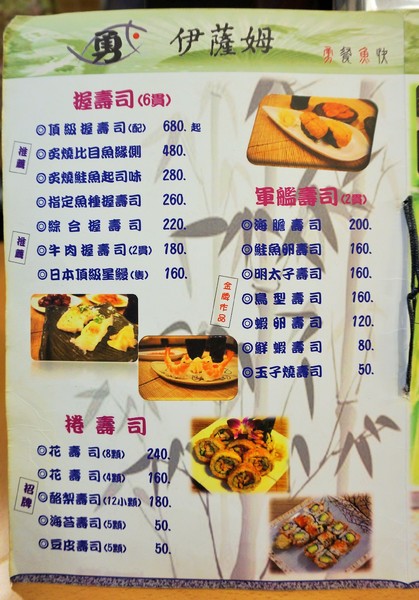 勇 伊薩姆
勇餐魚快
握壽司(6貫)
◎頂級握壽司(配) 680.起
推薦
◎炙燒比目魚緣側 480.
◎炙燒鮭魚起司味 280.
◎指定魚種握壽司 260.
◎綜合握壽司 220.
推薦
◎牛肉握壽司(2貫) 180.
◎日本頂級星鰻(隻) 160.
軍艦壽司(2貫)
◎海膽壽司 200.
◎鮭魚卵壽司 160.
◎明太子壽司 160.
金牌作品
◎鳥型壽司 160.
◎蝦卵壽司 120.
◎鮮蝦壽司 80.
◎玉子燒壽司 50.
捲壽司
◎花壽司(8顆) 240.
◎花壽司(4顆) 160.
招牌
◎酪梨壽司(12小顆) 180.
◎海苔壽司(5顆) 50.
◎豆皮壽司(5顆) 50.